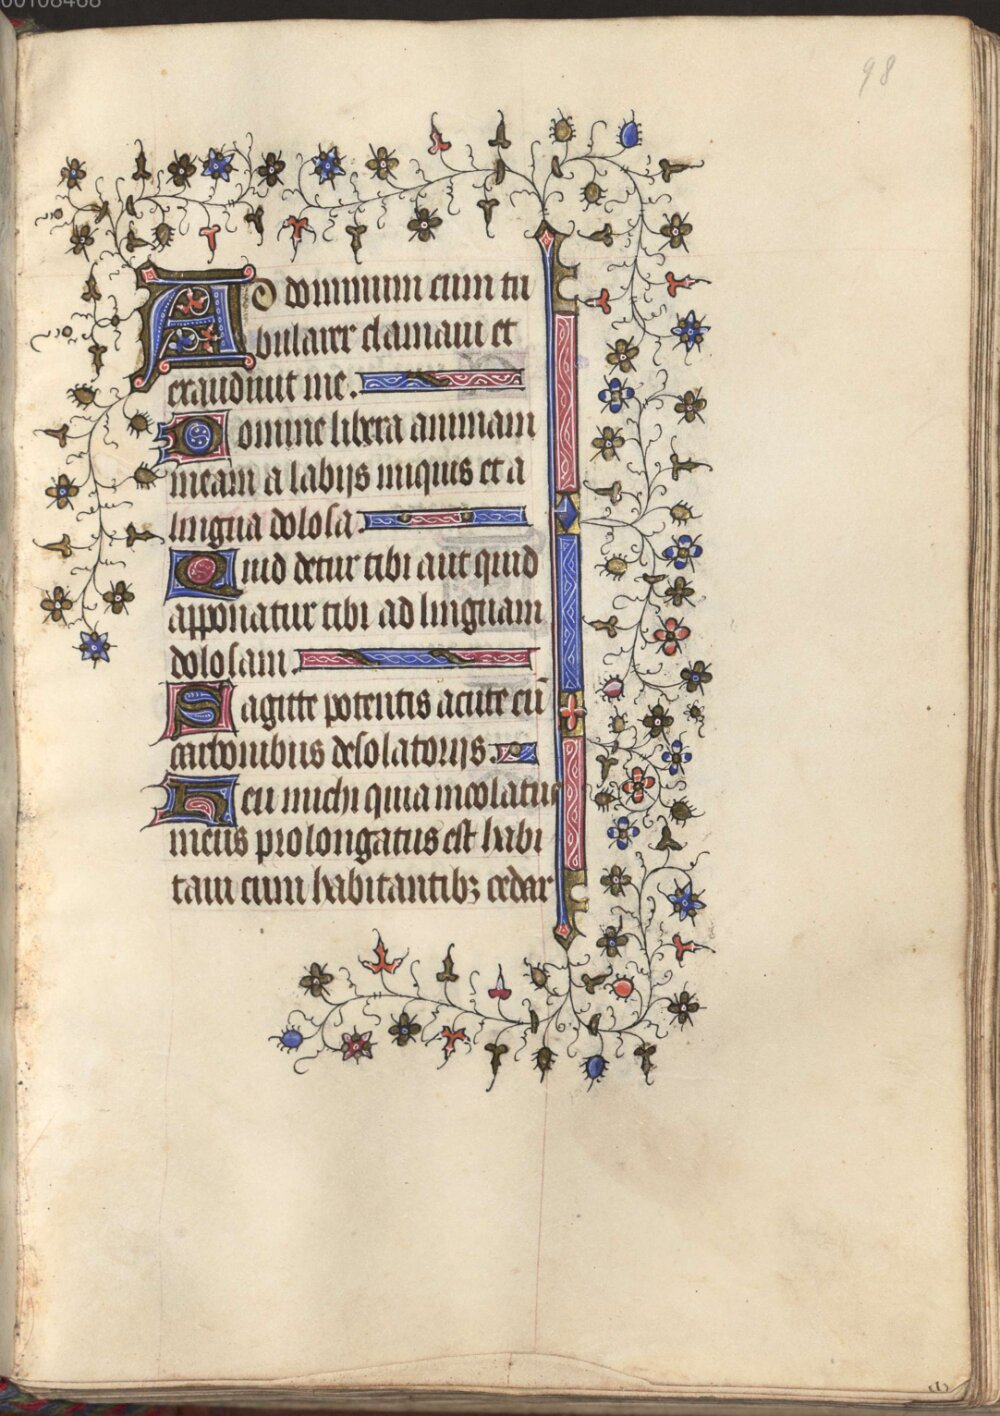 00108468
98
Ad dominum cum tri
bularer clamaui et
exaudiuit me.
Domine libera animam
meam a labijs iniquis et a
lingua dolosa.
Quid detur tibi aut quid
apponatur tibi ad linguam
dolosam.
Sagitte potentis acute cū
carbonibus desolatorijs.
Heu michi quia incolatus
meus prolongatus est habi
taui cum habitantibꝫ cedar